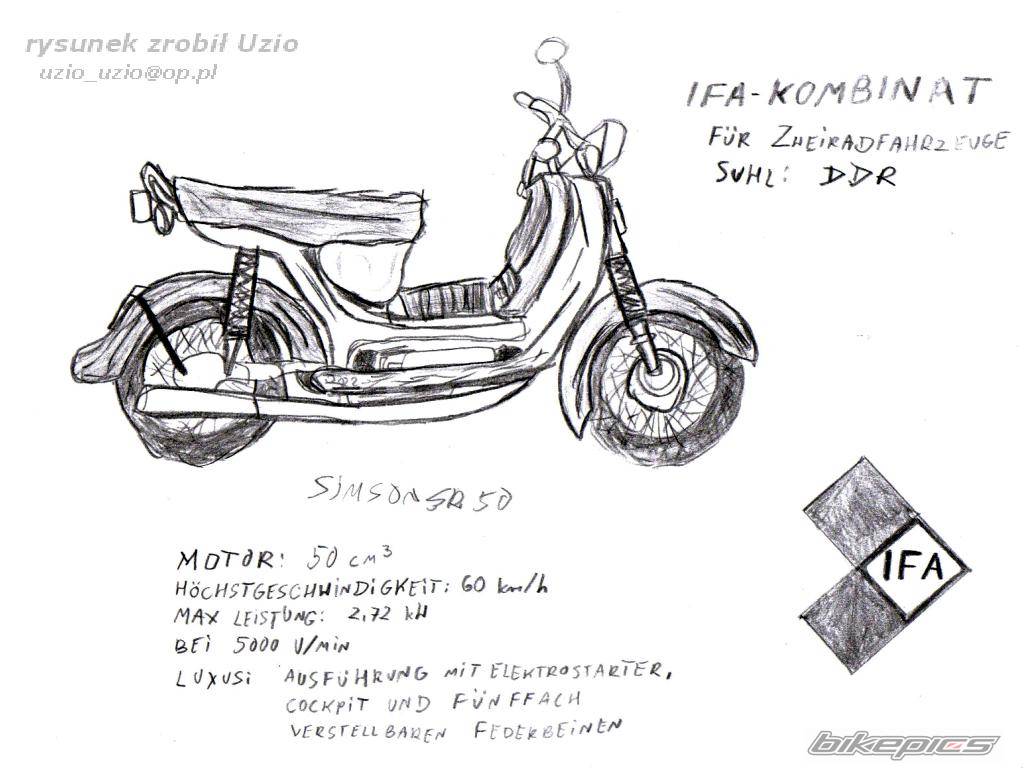 rysunek zrobił Uzio
uzio_uzio@op.pl
IFA-KOMBINAT
FÜR ZWEIRADFAHRZEUGE
SUHL: DDR
SIMSON SR 50
MOTOR: 50 cm³
HÖCHSTGESCHWINDIGKEIT: 60 km/h
MAX LEISTUNG: 2,72 kW
BEI 5000 U/min
LUXUS: AUSFÜHRUNG MIT ELEKTROSTARTER,
COCKPIT UND FÜNFFACH
VERSTELLBAREN FEDERBEINEN
IFA
bikepics